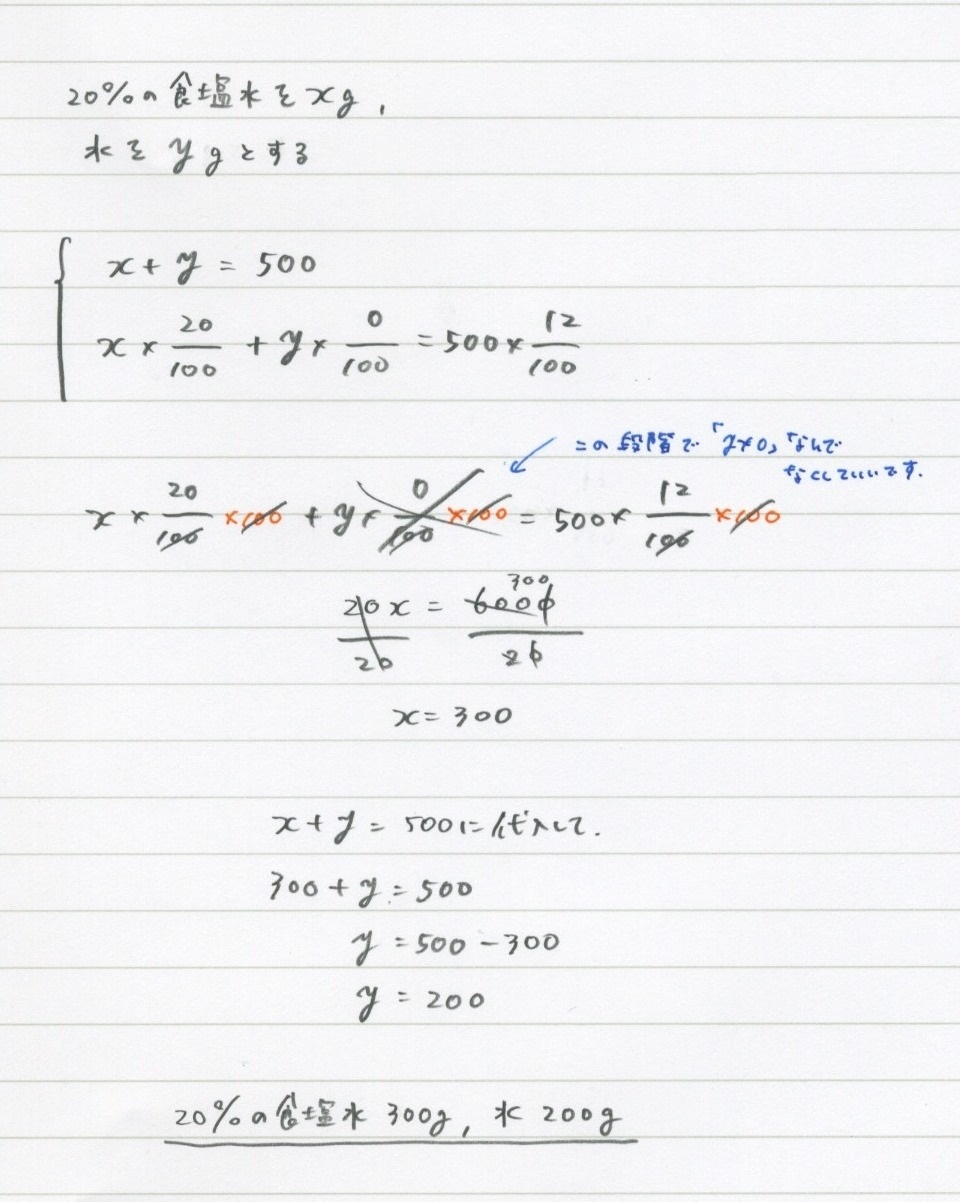 20%の食塩水をxg,
水をygとする
x+y=500
x×20/100+y×0/100=500×12/100
この段階で「y×0」なんで
なくしていいです.
x×20/100×100+y×0/100×100=500×12/100×100
300
20x/20=6000/20
x=300
x+y=500に代入して.
300+y=500
y=500-300
y=200
20%の食塩水300g,水200g